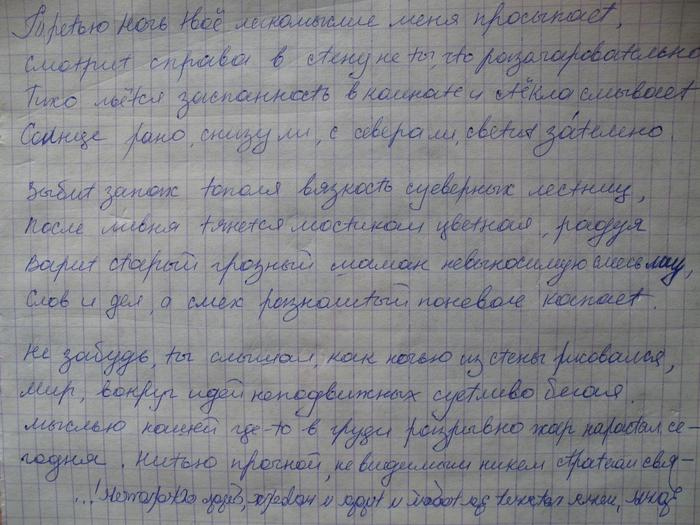 Третью ночь твоё легкомыслие меня просыпает,
Смотрит справа в стену не ты, что разочаровательно
Тихо льётся заспанность в комнате и стёкла смывает
Солнце рано, снизу ли, с севера ли, светит затемно.
Выбит запах тополя вязкость суеверных лестниц,
После ливня тянется мостиком цветная, радуя
Варит старый грозный шаман невыносимую смесь
Слов и дел, а смех разношёртый поневоле капает.
Не забудь, ты слышал, как ночью из стены рисовался,
Мир, вокруг идей неподвижных суетливо бегая.
Мыслью нашей где-то в груди разрывно жар нарастал, се-
годня. Нитью прочной, не видимыми никем